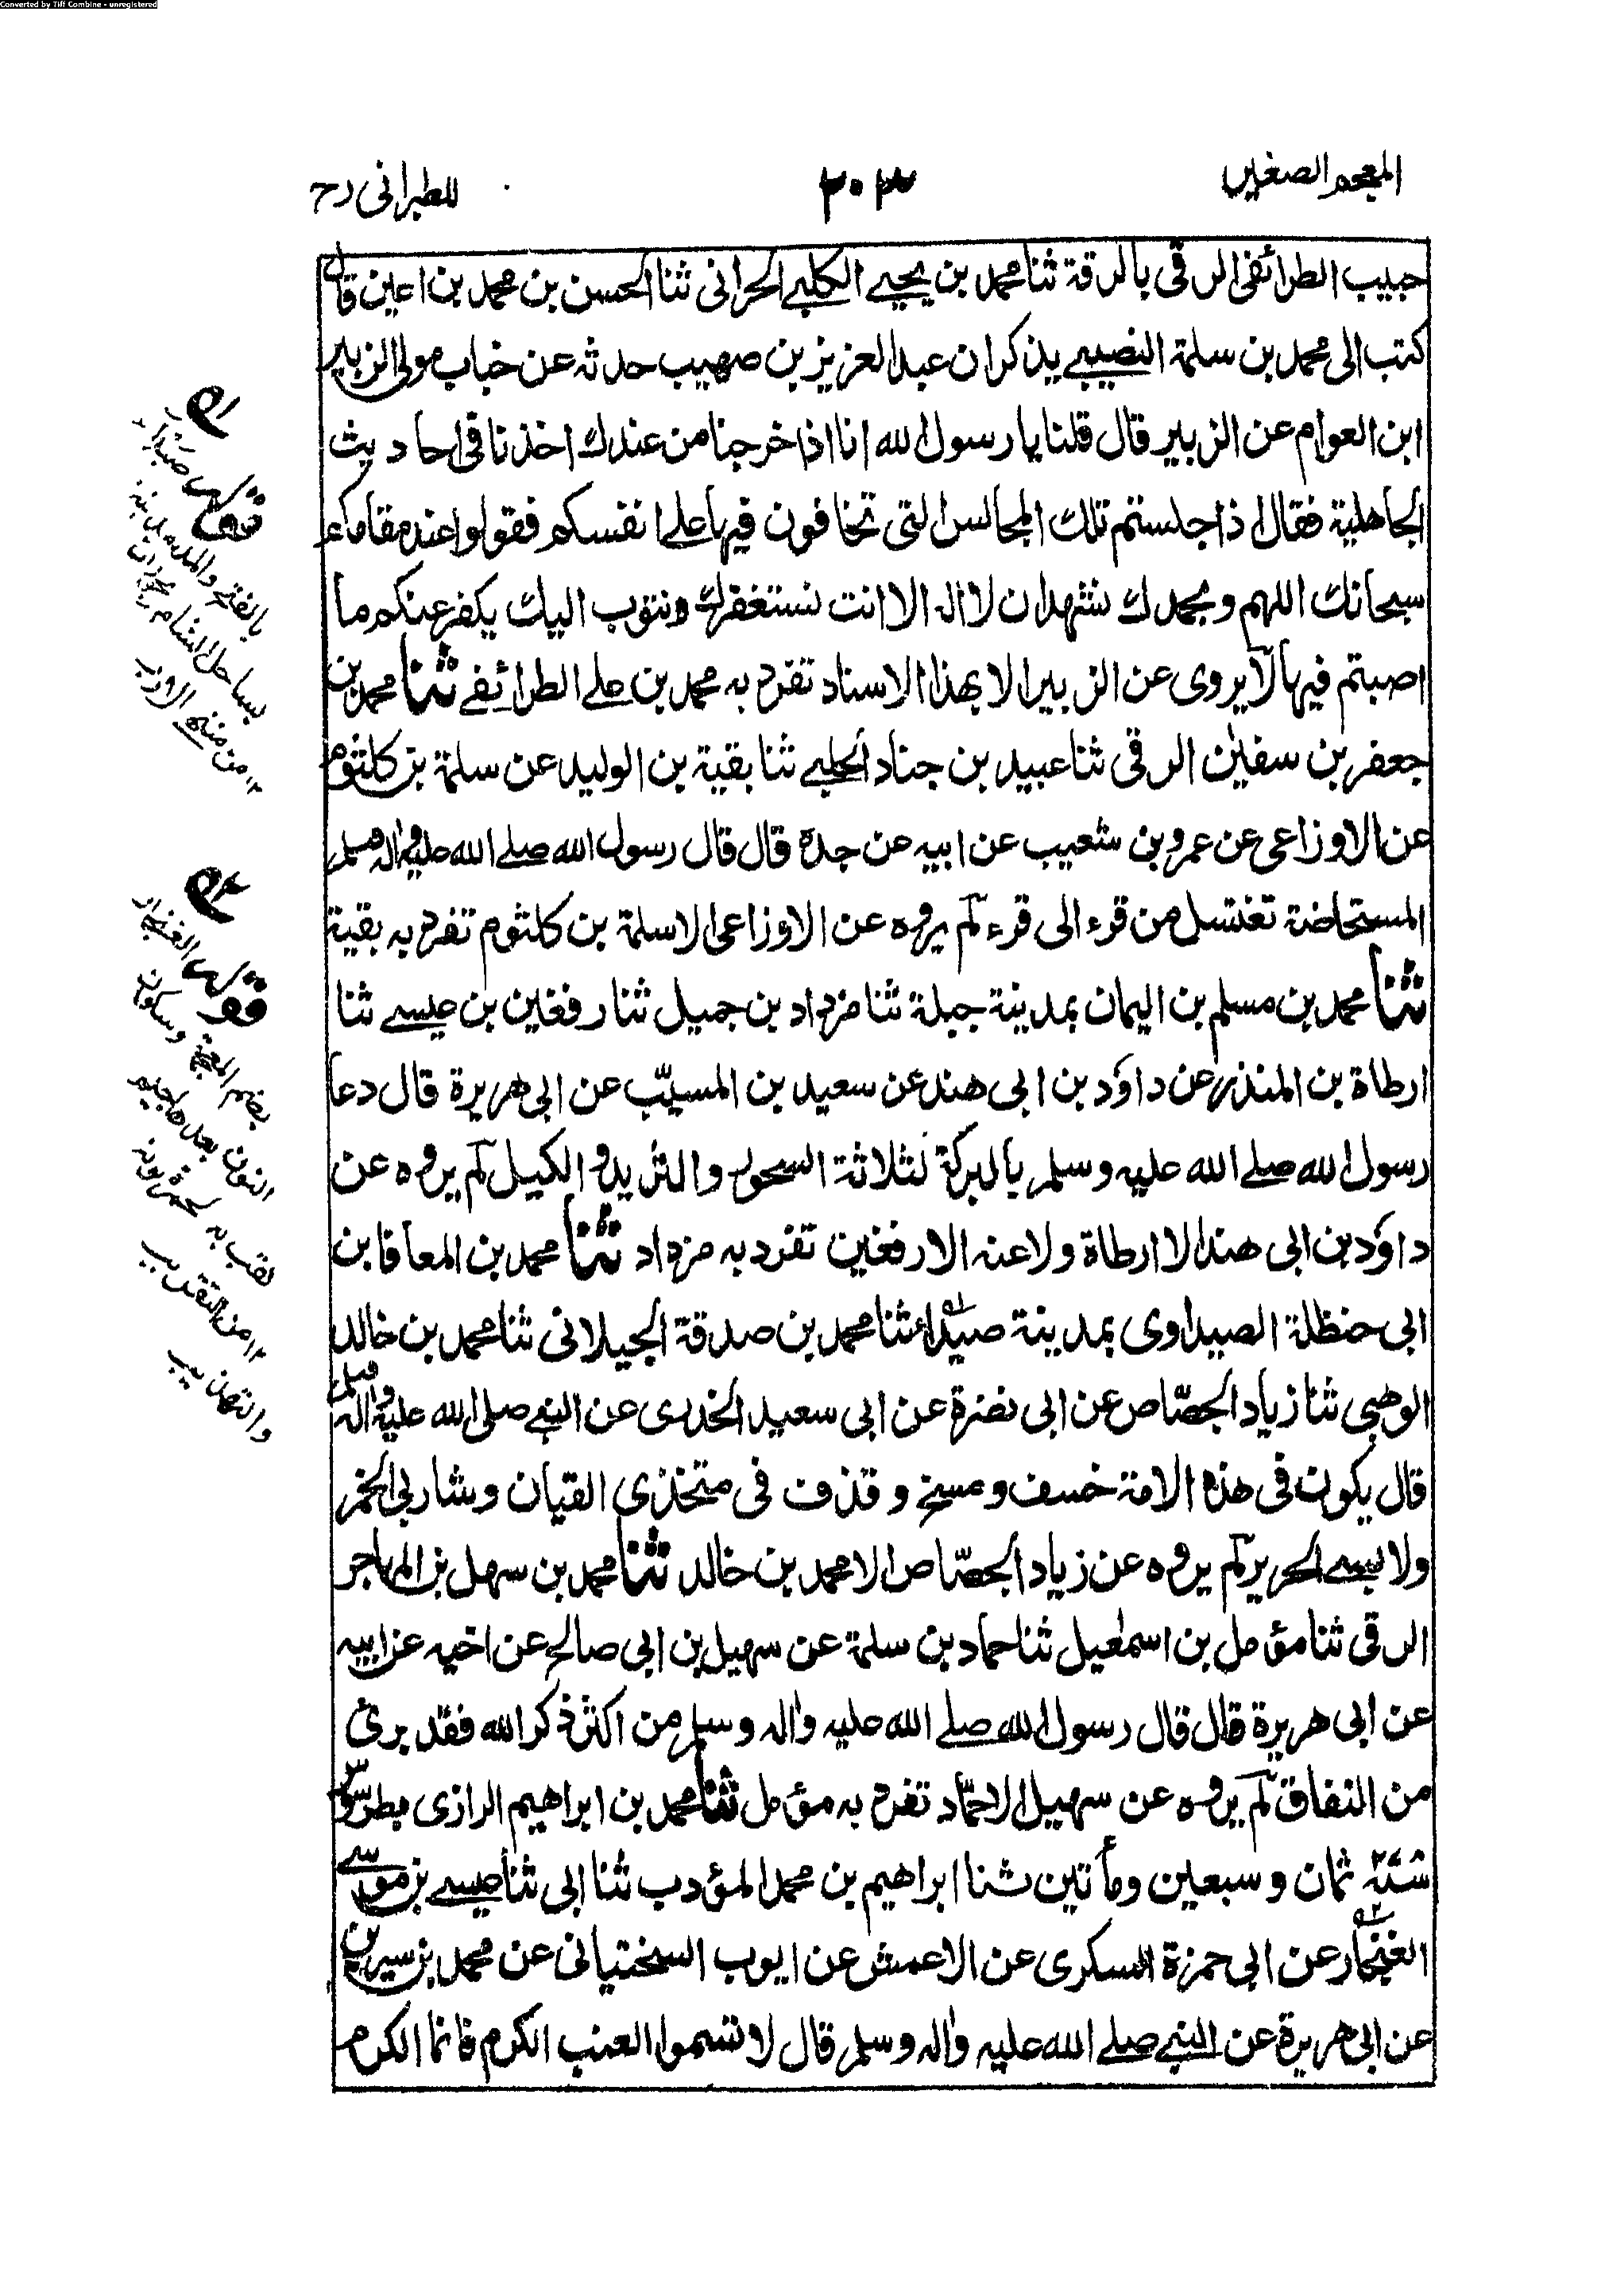 Converted by Tiff Combine - unregistered
المعجم الصغير
٢٠٣
للطبرانی رح
حبيب الطرائفی الرقی بالرقة ثنا محمد بن يحيے الكلبے الحرانی ثنا الحسن بن محمد بن اعين قال
كتب الی محمد بن سلمة النصيبے يذكر ان عبد العزيز بن صهيب حدثه عن خباب مولی الزبير
ابن العوام عن الزبير قال قلنا يا رسول الله انا اذا خرجنا من عندك اخذنا فی احاديث
الجاهلية فقال اذا جلستم تلك المجالس التی تخافون فيها علے انفسكم فقولوا عند مقامكم
سبحانك اللهم وبحمدك نشهد ان لا اله الا انت نستغفرك ونتوب اليك يكفر عنكم ما
اصبتم فيها لا يروی عن الزبير الا بهذا الاسناد تفرد به محمد بن علے الطرائفے ثنا محمد بن
جعفر بن سفيٰن الرقی ثنا عبيد بن جناد الحلبے ثنا بقية بن الوليد عن سلمة بن كلثوم
عن الاوزاعی عن عمرو بن شعيب عن ابيه عن جده قال قال رسول الله صلے الله عليه واله وسلم
المستحاضة تغتسل من قرء الی قرء لم يروه عن الاوزاعی الا سلمة بن كلثوم تفرد به بقية
ثنا محمد بن مسلم بن اليمان بمدينة جبلة ثنا مزداد بن جميل ثنا رفغين بن عيسے ثنا
ارطاة بن المنذر عن داؤد بن ابی هند عن سعيد بن المسيّب عن ابی هريرة قال دعا
رسول الله صلے الله عليه وسلم بالبركة لثلاثة السحور والثريد والكيل لم يروه عن
داؤد بن ابی هند الا ارطاة ولا عنه الا رفغين تفرد به مزداد ثنا محمد بن المعافا بن
ابی حنظلة الصيداوی بمدينة صيداء ثنا محمد بن صدقة الجيلانی ثنا محمد بن خالد
الوهبی ثنا زياد الجصّاص عن ابی نضرة عن ابی سعيد الخدری عن النبے صلی الله عليه واله وسلم
قال يكون فی هذه الامة خسف ومسخ وقذف فی متخذی القيان وشاربی الخمر
ولابسے الحرير لم يروه عن زياد الجصّاص الا محمد بن خالد ثنا محمد بن سهل بن المهاجر
الرقی ثنا مؤمل بن اسمٰعيل ثنا حماد بن سلمة عن سهيل بن ابی صالح عن اخيه عن ابيه
عن ابی هريرة قال قال رسول الله صلے الله عليه واٰله وسلم من اكثر ذكر الله فقد برئ
من النفاق لم يروه عن سهيل الا حمّاد تفرد به مؤمل ثنا محمد بن ابراهيم الرازی بطرسوس
سنة ثمان وسبعين ومأتين ثنا ابراهيم بن محمد المؤدب ثنا ابی ثنا عيسے بن موسے
الغنجار عن ابی حمزة السكری عن الاعمش عن ايوب السختيانی عن محمد بن سيرين
عن ابی هريرة عن النبے صلے الله عليه واٰله وسلم قال لا تسموا العنب الكرم فانما الكرم
قوله صيداء
بالفتح والمد مدينة
بساحل الشام
١٢ من منتهی الارب
قوله الغنجار
بضم المعجمة وسكون
النون بعدها جيم
لقب به لحمرة لونه
١٢ من التقريب
والتهذيب